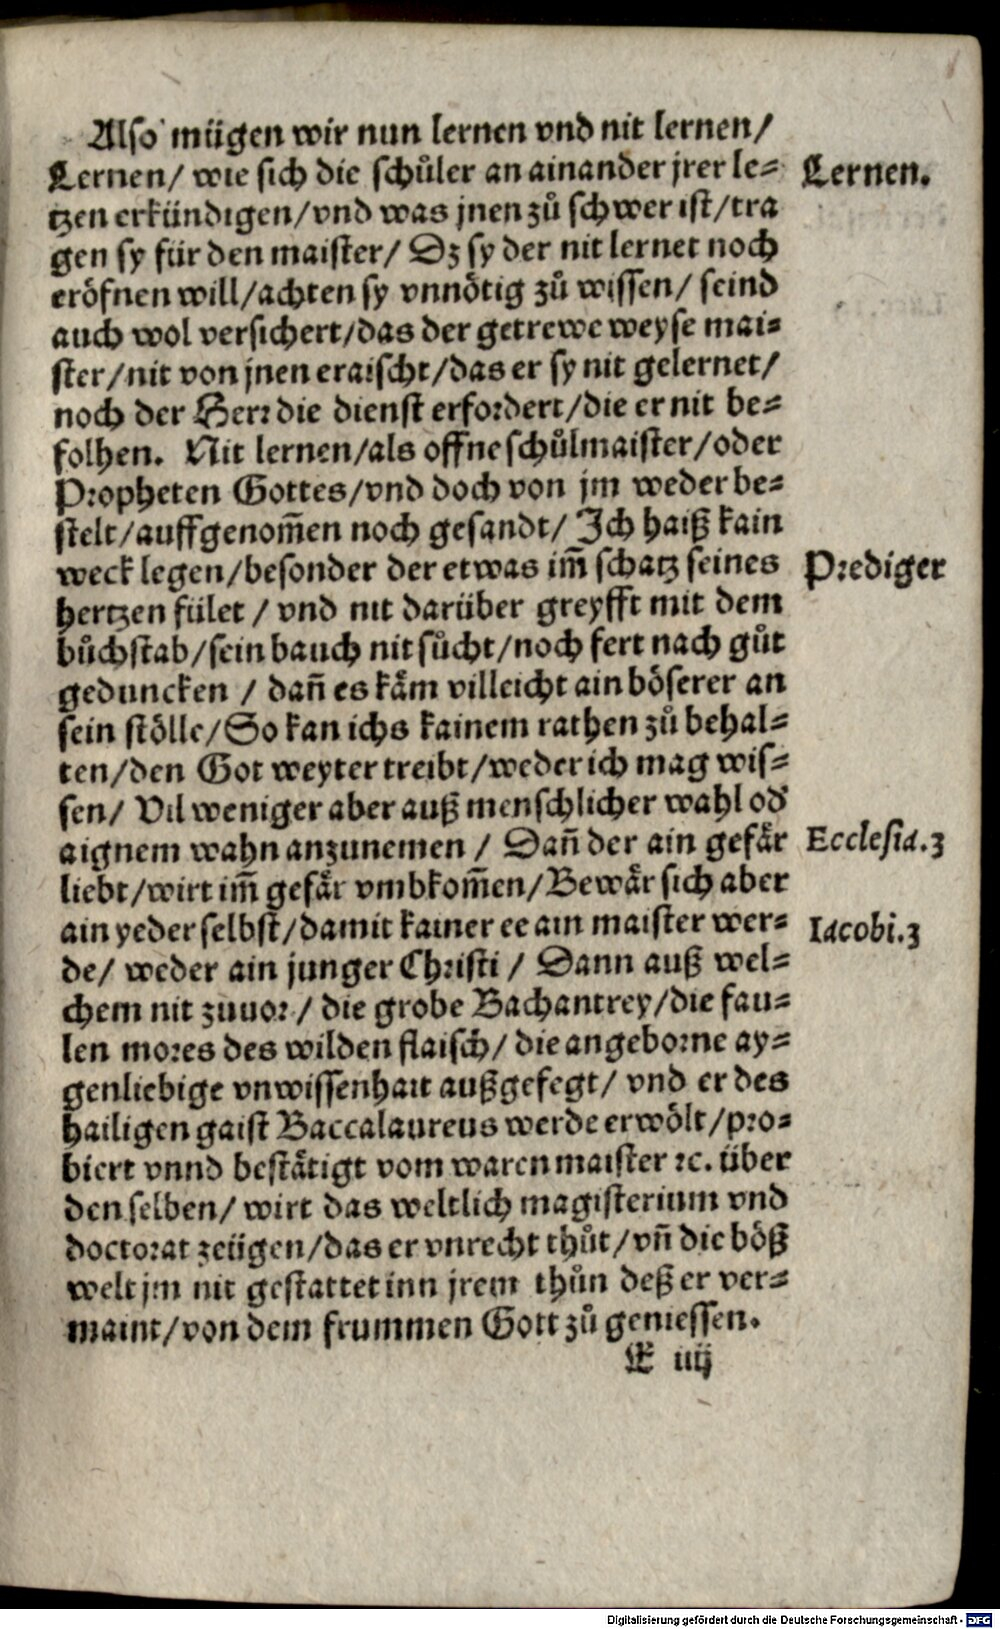 Also mügen wir nun lernen vnd nit lernen/
Lernen/ wie sich die schůler an ainander jrer le=
Lernen.
tzen erkündigen/vnd was jnen zů schwer ist/tra
gen sy für den maister/ Dz sy der nit lernet noch
eröfnen will/achten sy vnnötig zů wissen/ seind
auch wol versichert/das der getrewe weyse mai=
ster/nit von jnen eraischt/das er sy nit gelernet/
noch der Herr die dienst erfordert/die er nit be=
folhen. Nit lernen/als offne schůlmaister/oder
Propheten Gottes/vnd doch von jm weder be=
stelt/auffgenom̃en noch gesandt/ Ich haiß kain
weck legen/besonder der etwas im̃ schatz seines
Prediger
hertzen fület / vnd nit darüber greyfft mit dem
bůchstab/sein bauch nit sůcht/noch fert nach gůt
geduncken / dañ es kåm villeicht ain böserer an
sein stölle/So kan ichs kainem rathen zů behal=
ten/den Got weyter treibt/weder ich mag wis=
sen/ Vil weniger aber auß menschlicher wahl od̕
aignem wahn anzunemen / Dañ der ain gefår
Ecclesia.3
liebt/wirt im̃ gefår vmbkom̃en/Bewår sich aber
ain yeder selbst/damit kainer ee ain maister wer=
Iacobi.3
de/ weder ain junger Christi / Dann auß wel=
chem nit zuuor/ die grobe Bachantrey/die fau=
len mores des wilden flaisch/ die angeborne ay=
genliebige vnwissenhait außgefegt/ vnd er des
hailigen gaist Baccalaureus werde erwölt/pro=
biert vnnd beståtigt vom waren maister ⁊c. über
den selben/ wirt das weltlich magisterium vnd
doctorat zeügen/das er vnrecht thůt/vñ die böß
welt jm nit gestattet inn jrem thůn deß er ver=
maint/von dem frummen Gott zů geniessen.
E iiij
Digitalisierung gefördert durch die Deutsche Forschungsgemeinschaft - DFG